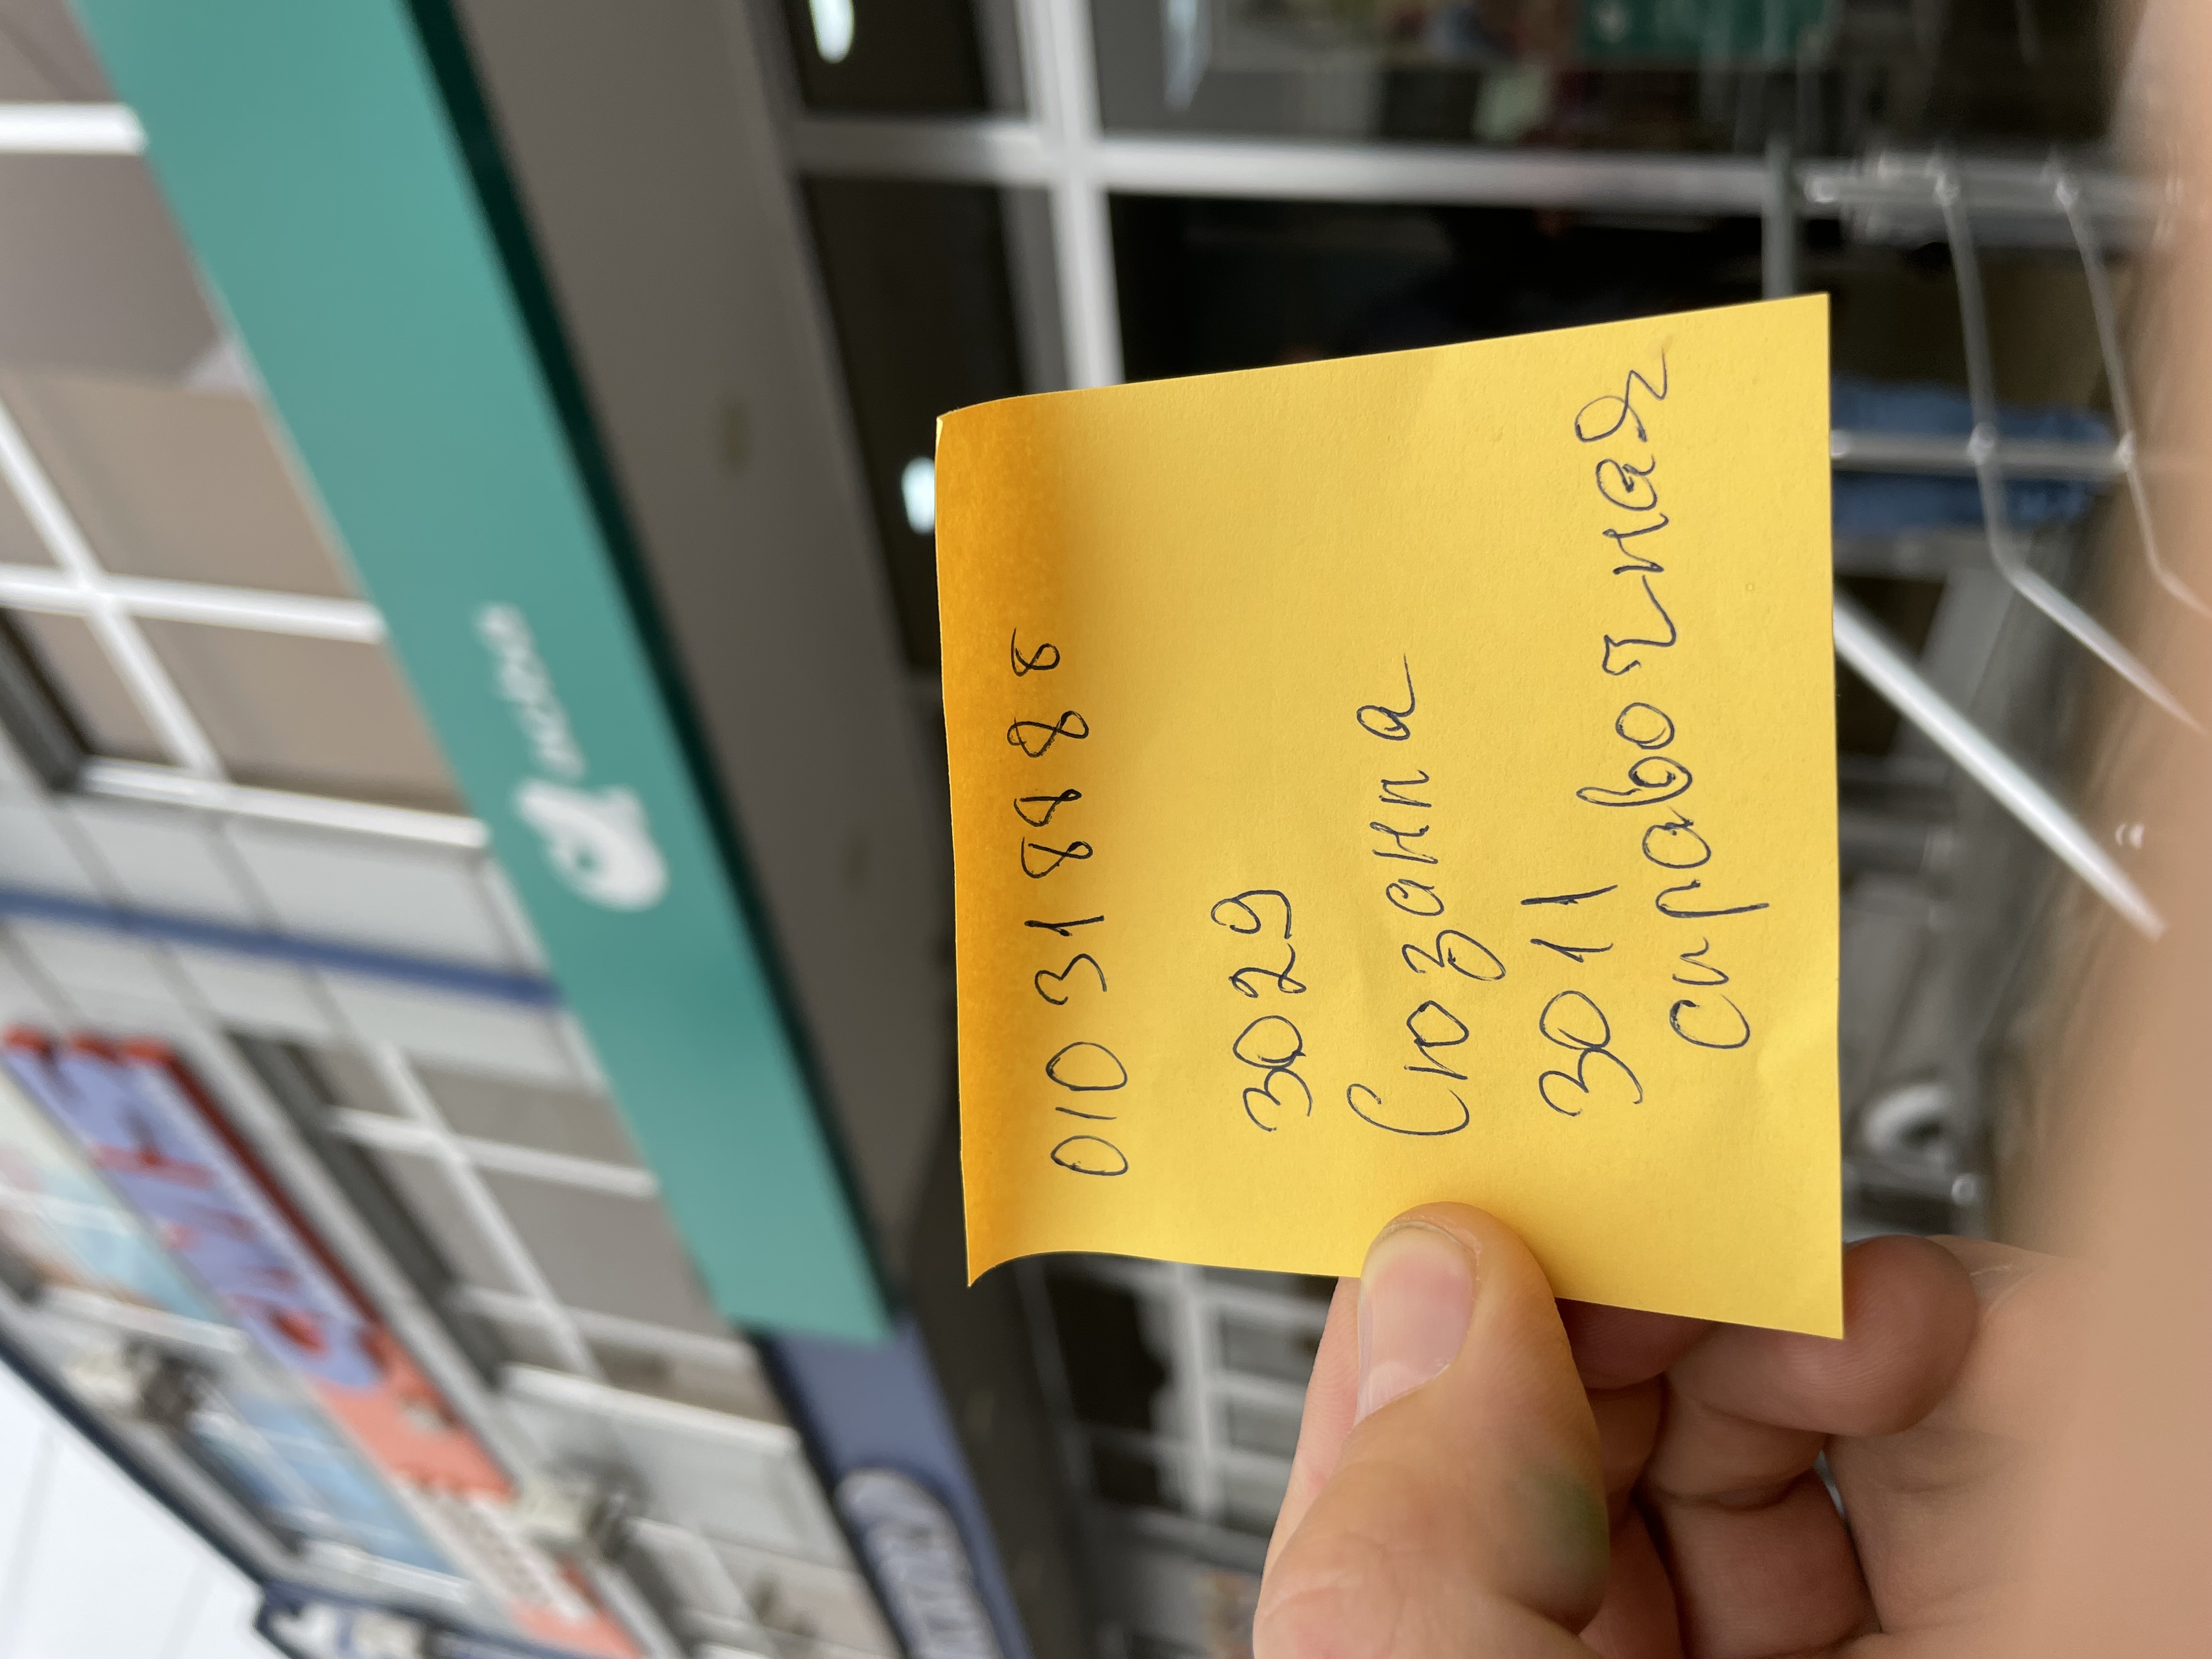 acba
010 318888
3029
Сюзанна
3011
справочная